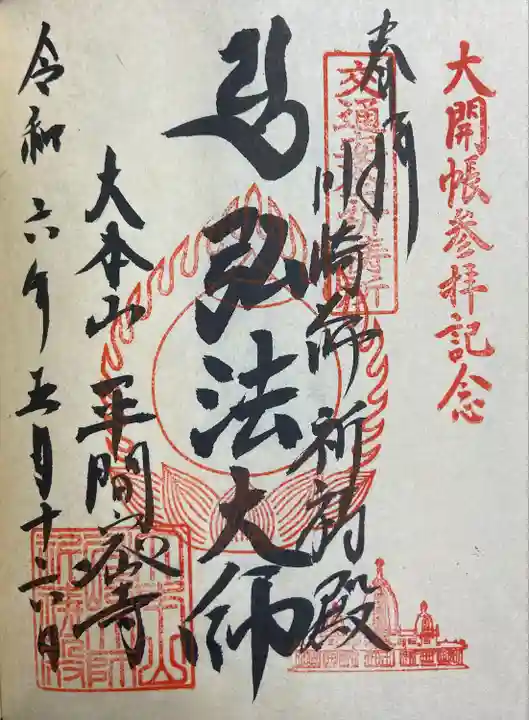 大開帳参拝記念
奉拝
交通安全祈祷所
川崎市祈祷殿
弘法大師
大本山 平間寺
令和六年五月十二日